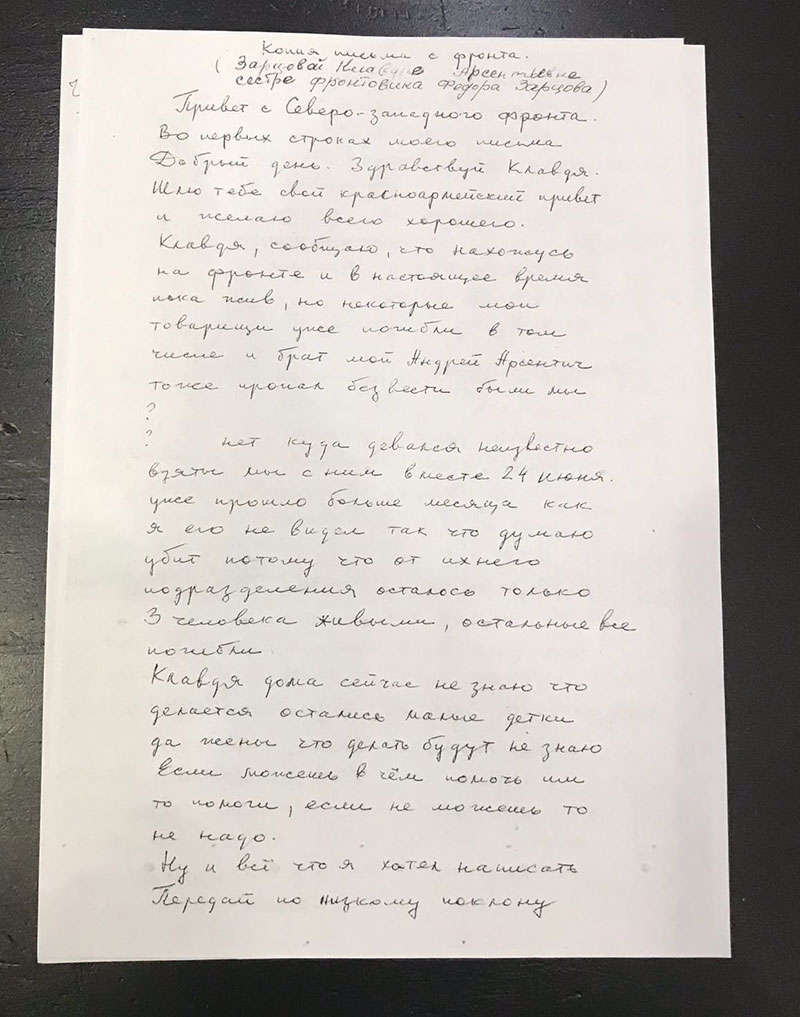 Копия письма с фронта.
(Зарцовой Клавдие Арсентьевне
сестре фронтовика Федора Зарцова)
Привет с Северо-западного фронта.
Во первых строках моего письма
Добрый день. Здравствуй Клавдя.
Шлю тебе свой красноармейский привет
и желаю всего хорошего.
Клавдя, сообщаю, что нахожусь
на фронте и в настоящее время
пока жив, но некоторые мои
товарищи уже погибли в том
числе и брат мой Андрей Арсентич
тоже пропал безвести были мы
?
? нет куда девался неизвестно
взяты мы с ним вместе 24 июня.
уже прошло больше месяца как
я его не видел так что думаю
убит потому что от ихнего
подразделения осталось только
3 человека живыми, остальные все
погибли.
Клавдя дома сейчас не знаю что
делается остались малые детки
да жены что делать будут не знаю
Если можешь в чём помочь им
то помоги, если не можешь то
не надо.
Ну и всё что я хотел написать
Передай по низкому поклону